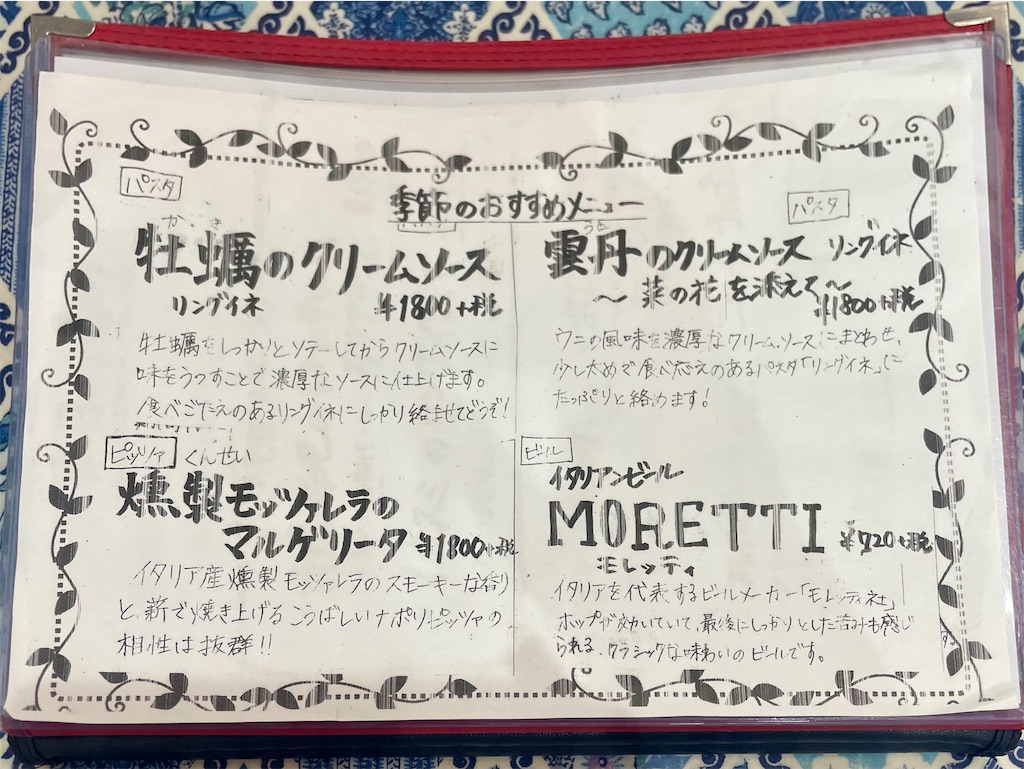 季節のおすすめメニュー
パスタ
かき
牡蠣のクリームソース
リングイネ ¥1800+税
牡蠣をしっかりとソテーしてからクリームソースに
味をうつすことで濃厚なソースに仕上げます。
食べごたえのあるリングイネにしっかり絡ませてどうぞ!
パスタ
うに
雲丹のクリームソース リングイネ
〜菜の花を添えて〜 ¥1800+税
ウニの風味を濃厚なクリームソースにまとわせ、
少し太めで食べ応えのあるパスタ「リングイネ」に
たっぷりと絡めます!
ピッツァ くんせい
燻製モッツァレラの
マルゲリータ ¥1800+税
イタリア産燻製モッツァレラのスモーキーな香り
と、薪で焼き上げるこうばしいナポリピッツァの
相性は抜群!!
ビール
イタリアンビール
MORETTI ¥720+税
モレッティ
イタリアを代表するビールメーカー「モレッティ社」
ホップが効いていて、最後にしっかりとした苦みも感じ
られる、クラシックな味わいのビールです。